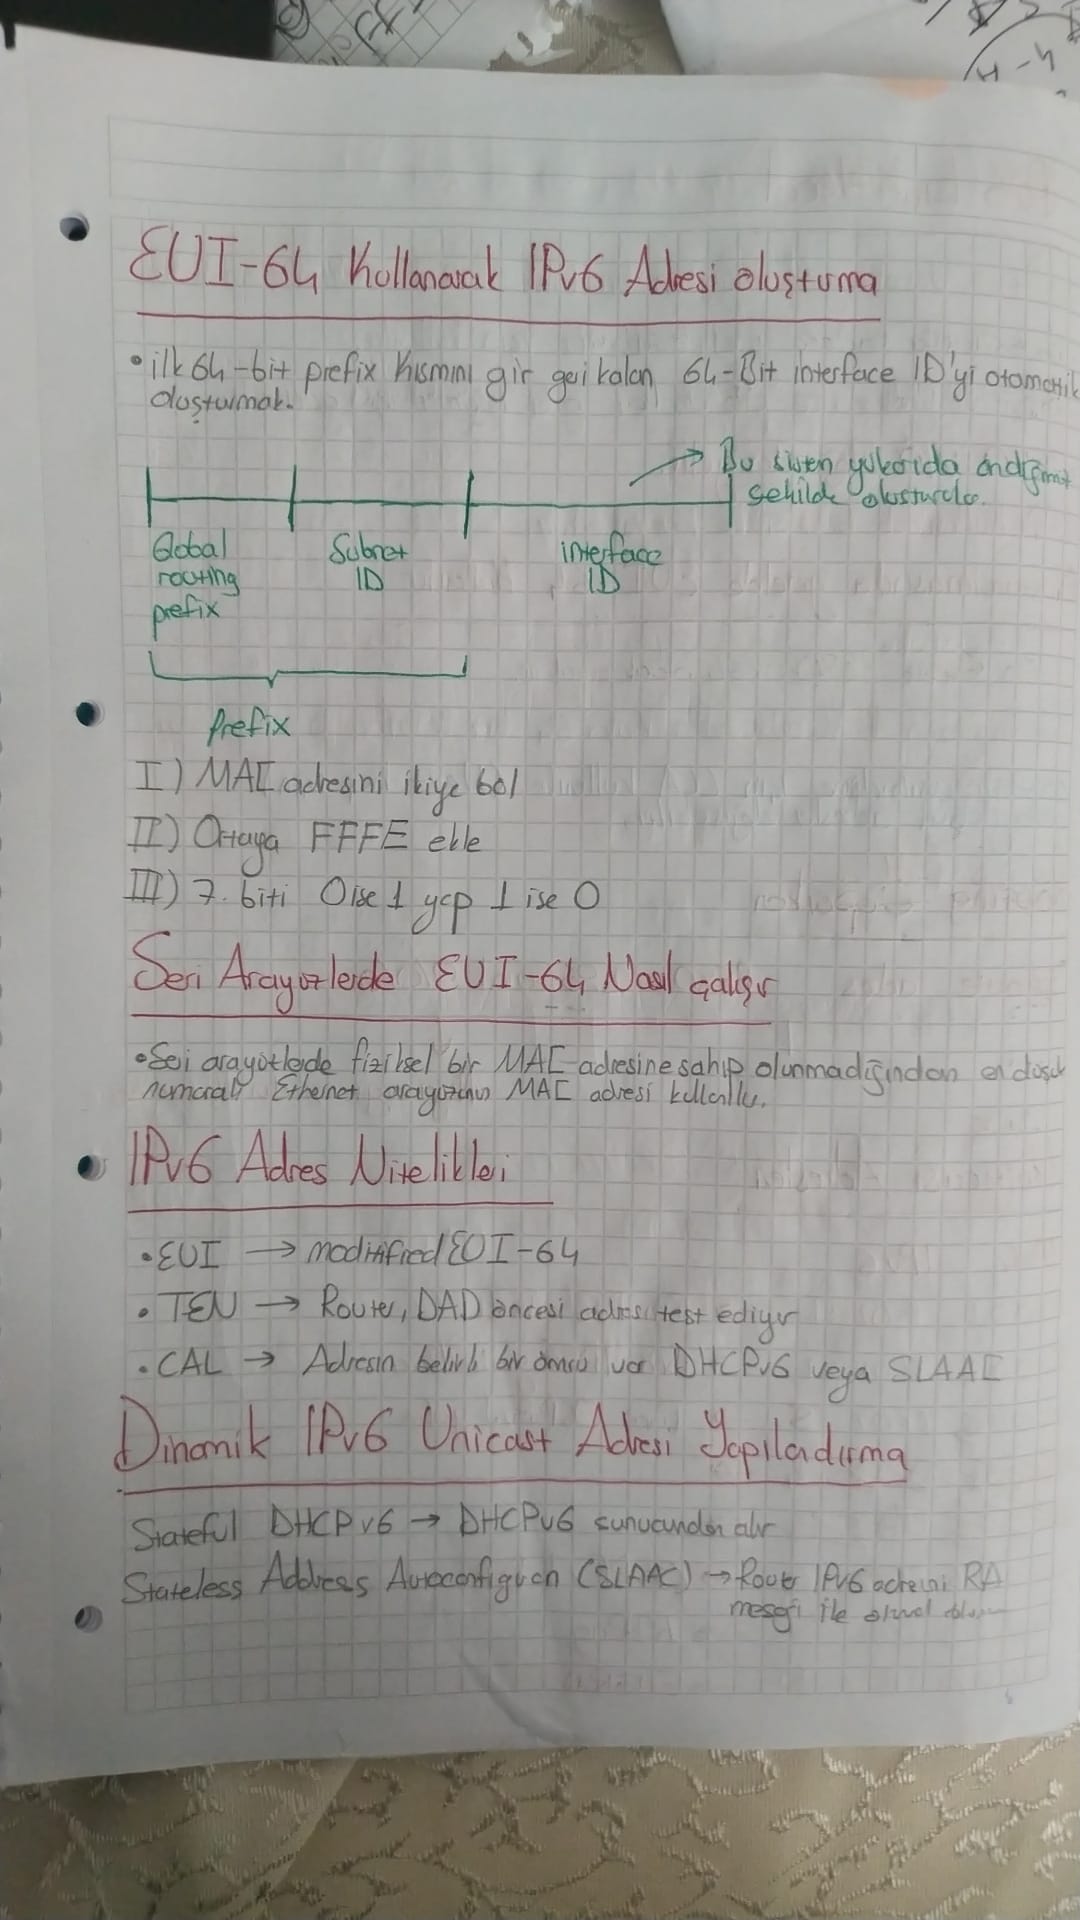 EUI-64 Kullanarak IPv6 Adresi oluşturma
• ilk 64-bit prefix kısmını gir geri kalan 64-Bit interface ID'yi otomatik
oluşturmak.
→ Bu sistem yukarıda
şekilde oluşturulur.
Global
routing
prefix
Subnet
ID
interface
ID
prefix
I) MAC adresini ikiye böl
II) Ortaya FFFE ekle
III) 7. biti 0 ise 1 yap 1 ise 0
Seri Arayüzlerde EUI-64 Nasıl çalışır
• Seri arayüzlerde fiziksel bir MAC adresine sahip olunmadığından en düşük
numaralı Ethernet arayüzünün MAC adresi kullanılır.
IPv6 Adres Nitelikleri
• EUI → modified EUI-64
• TEN → Router, DAD öncesi adresi test ediyor
• CAL → Adresin belirli bir ömrü var DHCPv6 veya SLAAC
Dinamik IPv6 Unicast Adresi Yapılandırma
Stateful DHCPv6 → DHCPv6 sunucundan alır
Stateless Address (SLAAC) → Router IPv6 adresini RA
mesajı ile